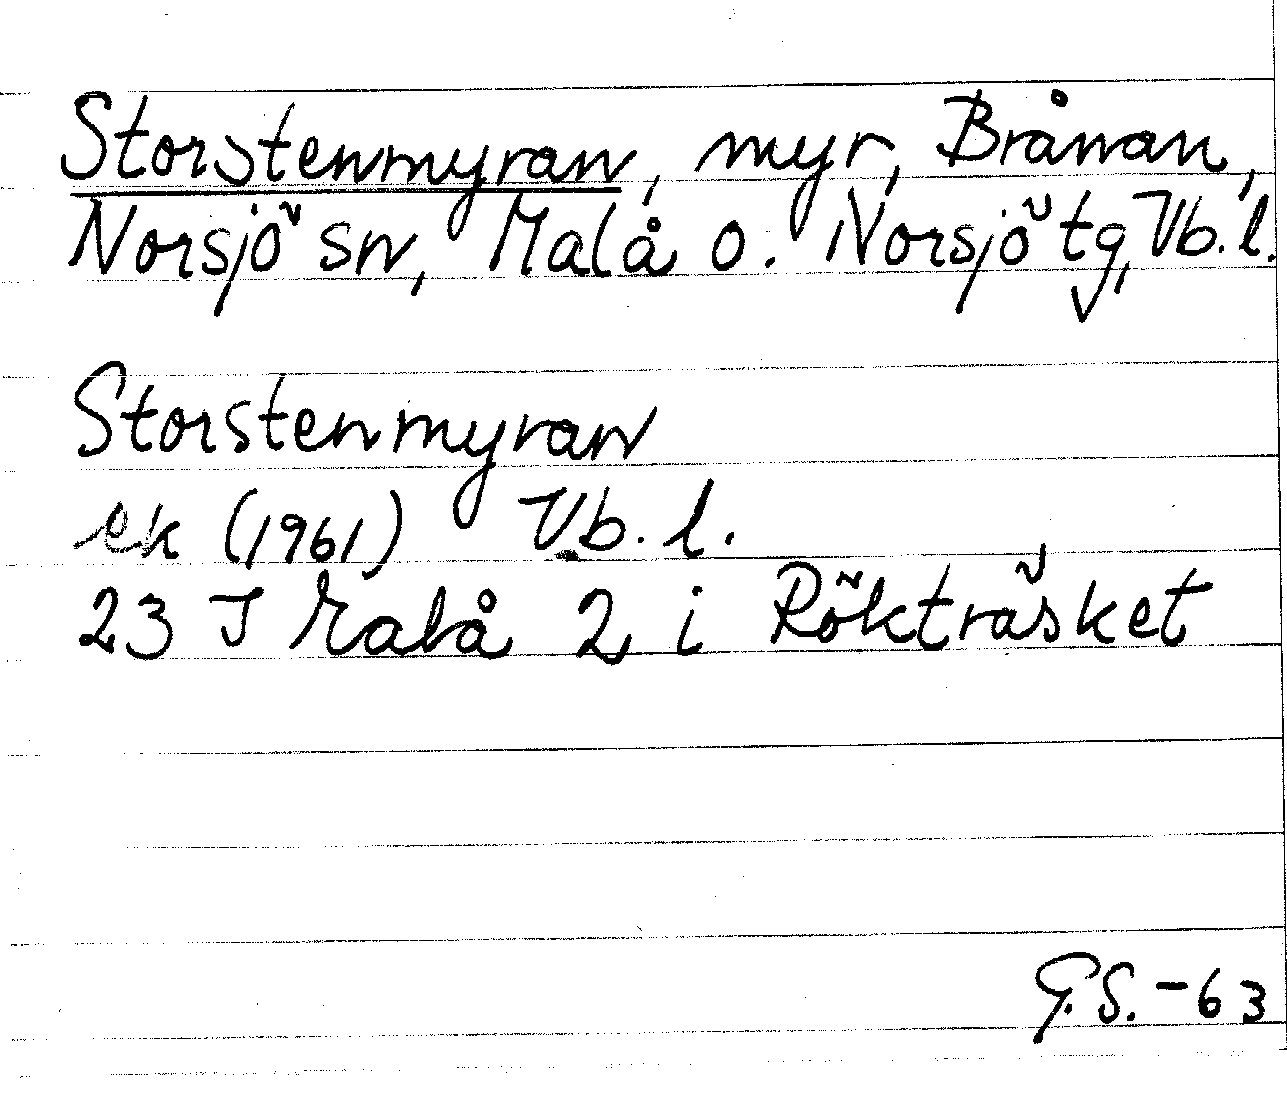 Storstenmyran, myr, Brånan,
Norsjö sn, Malå o. Norsjö tg, Vb. l.
Storstenmyran
ek (1961) Vb. l.
23 J Malå 2 i Rökträsket
G.S. -63